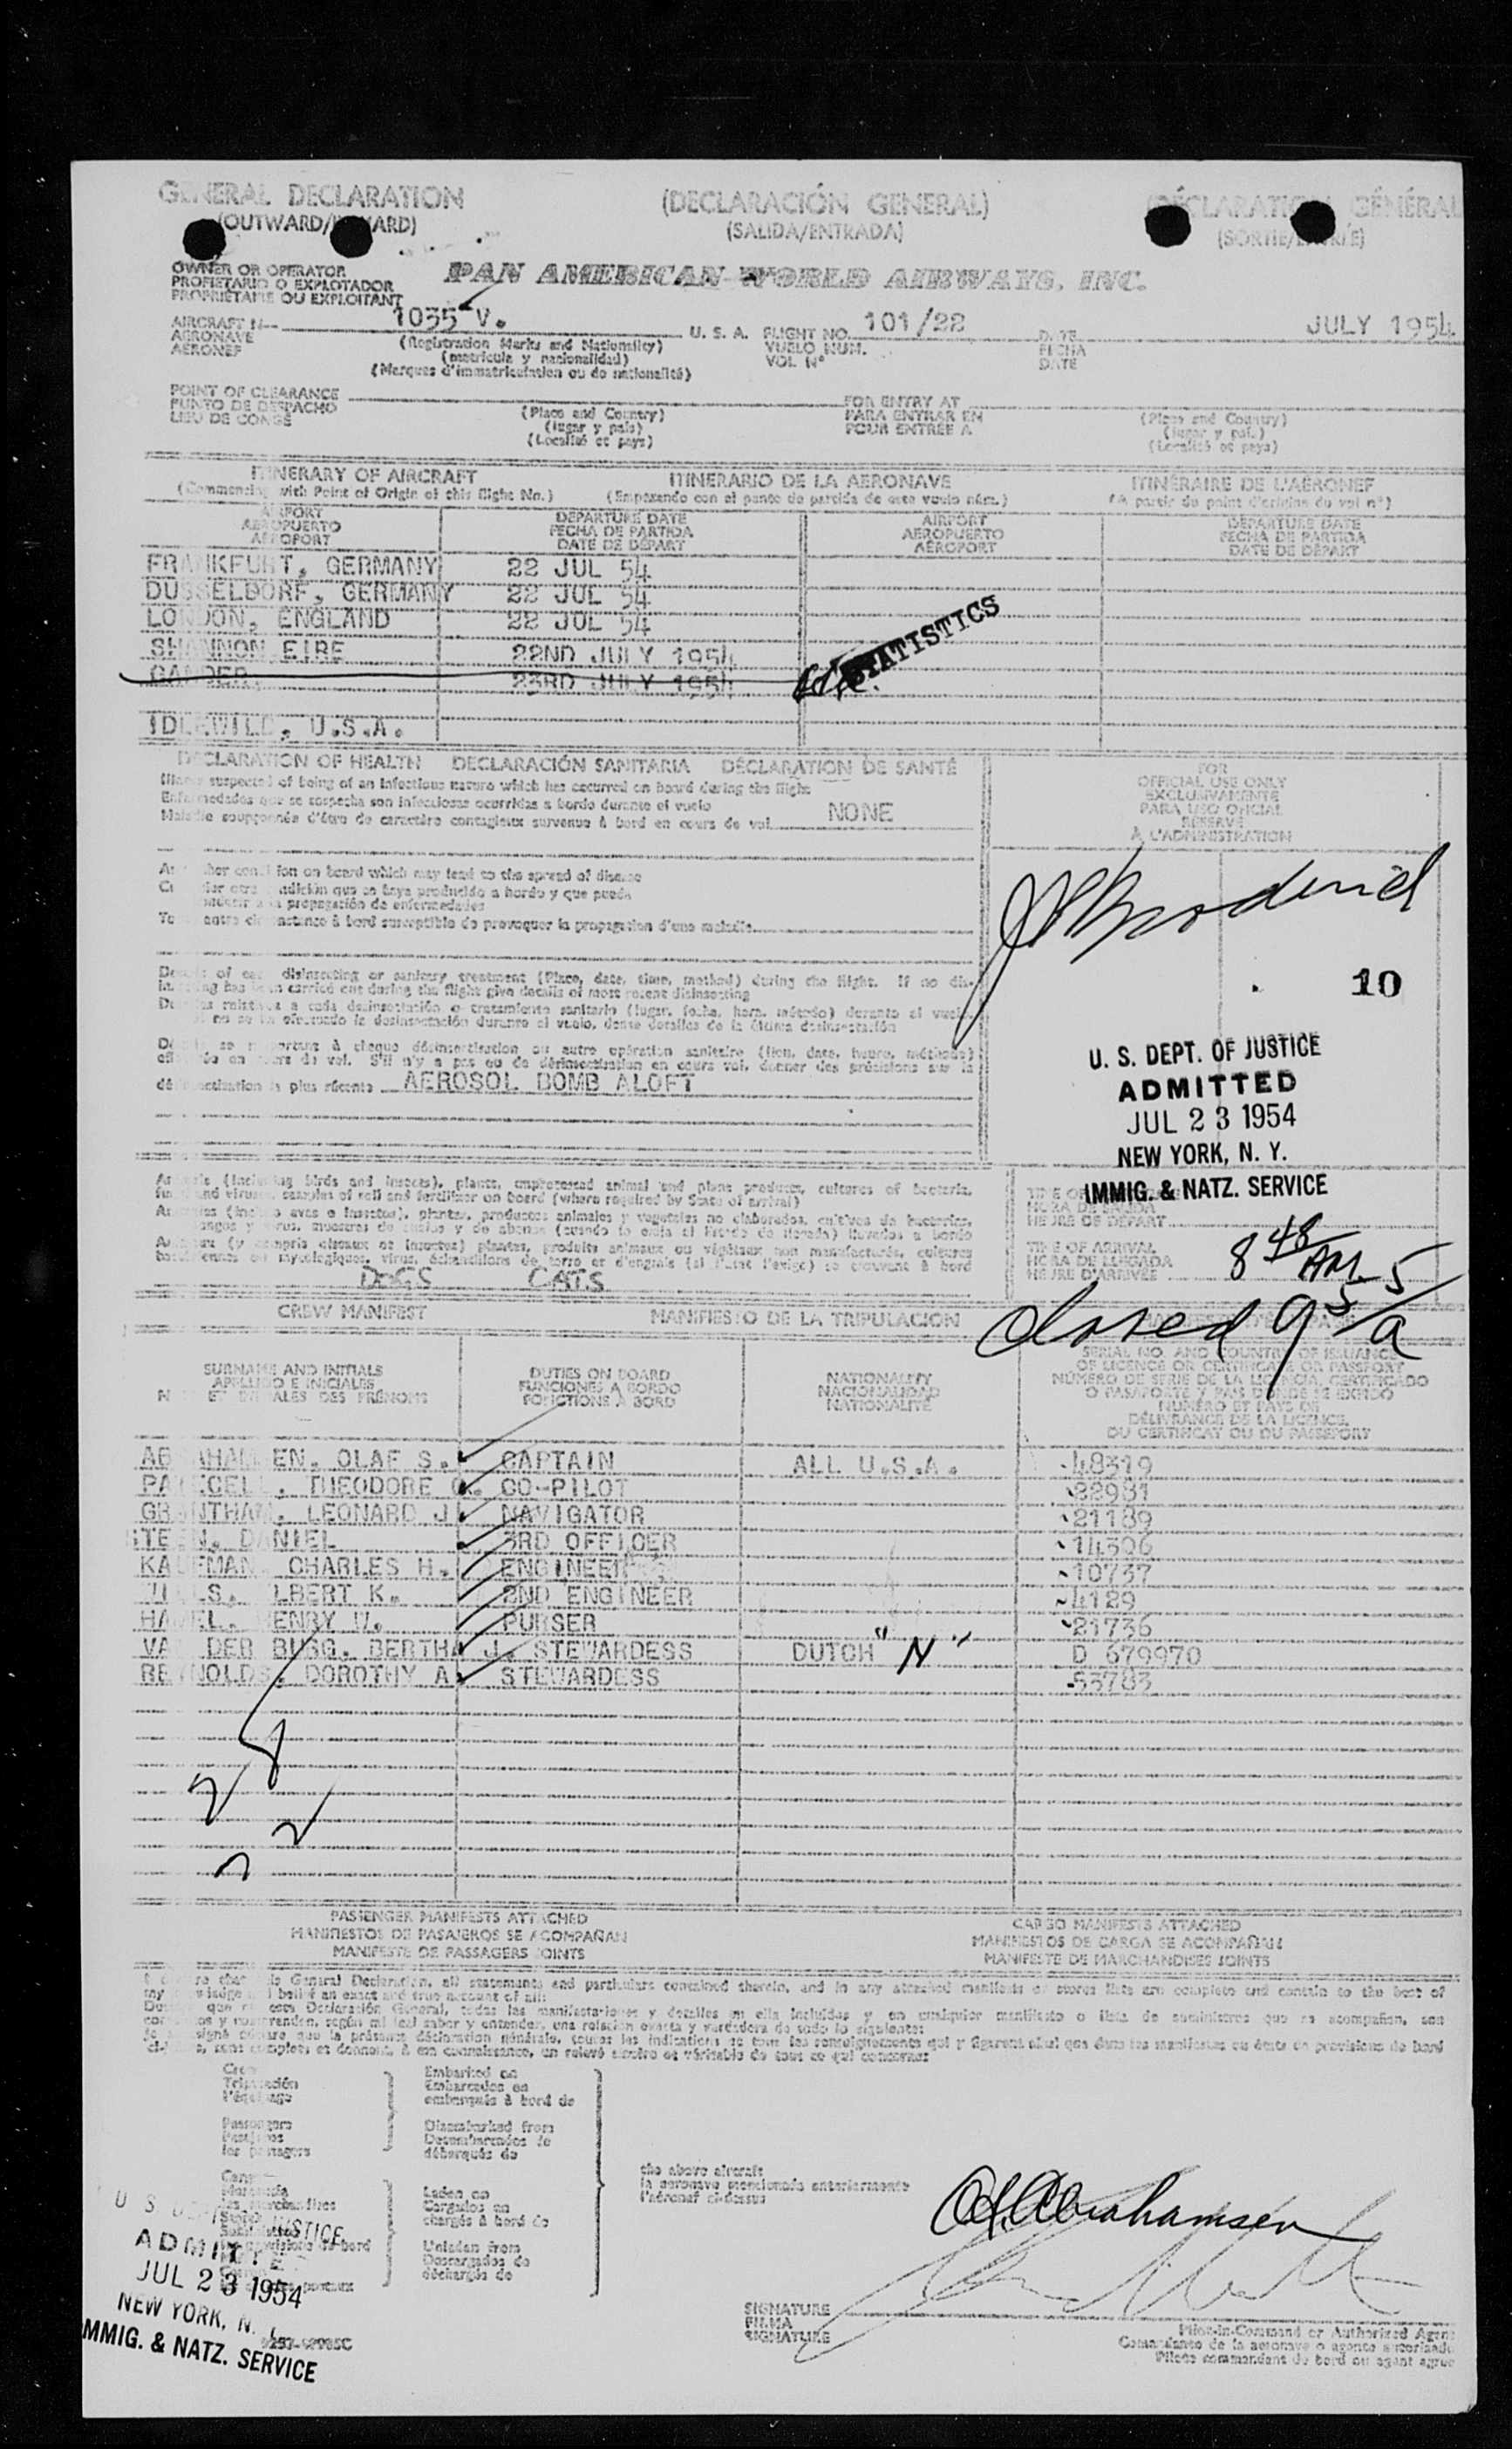 GENERAL DECLARATION (DECLARACIÓN GENERAL) DÉCLARATION GÉNÉRAL
(OUTWARD/ (SALIDA/ENTRADA) (SORTIE/
OWNER OR OPERATOR
PROPIETARIO O EXPLOTADOR
PROPRIÉTAIRE OU EXPLOITANT
PAN AMERICAN WORLD AIRWAYS, INC.
AIRCRAFT 1035 V. U. S. A. FLIGHT NO. 101/22 DATE JULY 1954
AERONAVE (Registration Marks and Nationality) VUELO NUM. FECHA
AÉRONEF (matrícula y nacionalidad) VOL N° DATE
(Marques d'immatriculation ou de nationalité)
POINT OF CLEARANCE FOR ENTRY AT
PUNTO DE DESPACHO (Place and Country) PARA ENTRAR EN (Place and Country)
LIEU DE CONGÉ (lugar y país) POUR ENTRÉE A (lugar y país)
(Localité et pays) (Localité et pays)
ITINERARY OF AIRCRAFT ITINERARIO DE LA AERONAVE ITINÉRAIRE DE L'AÉRONEF
(Commencing with Point of Origin of this flight No.) (Empezando con el punto de partida de este vuelo núm.) (A partir du point d'origine du vol n°)
AIRPORT DEPARTURE DATE AIRPORT DEPARTURE DATE
AEROPUERTO FECHA DE PARTIDA AEROPUERTO FECHA DE PARTIDA
AÉROPORT DATE DE DÉPART AÉROPORT DATE DE DÉPART
FRANKFURT, GERMANY 22 JUL 54
DUSSELDORF, GERMANY 22 JUL 54
LONDON, ENGLAND 22 JUL 54
SHANNON EIRE 22ND JULY 1954
GANDER 23RD JULY 1954
STATISTICS
IDLEWILD, U.S.A.
DECLARATION OF HEALTH DECLARACIÓN SANITARIA DÉCLARATION DE SANTÉ
FOR
OFFICIAL USE ONLY
EXCLUSIVAMENTE
PARA USO OFICIAL
RÉSERVÉ
À L'ADMINISTRATION
suspected of being of an infectious nature which has occurred on board during the flight
Enfermedades que se sospecha son infecciosas ocurridas a bordo durante el vuelo
Maladie soupçonnée d'être de caractère contagieux survenue à bord en cours de vol NONE
condition on board which may lead to the spread of disease
condición que se haya producido a bordo y que pueda
propagación de enfermedades
à bord susceptible de provoquer la propagation d'une maladie
10
disinsecting or sanitary treatment (Place, date, time, method) during the flight. If no dis-
carried out during the flight give details of most recent disinsecting
a cada desinsectación o tratamiento sanitario (lugar, fecha, hora, método) durante el vuelo.
la desinsectación durante el vuelo, dense detalles de la última desinsectación
à chaque désinsectisation ou autre opération sanitaire (lieu, date, heure, méthode)
de vol. S'il n'y a pas eu de désinsectisation en cours vol, donner des précisions sur la
la plus récente AEROSOL BOMB ALOFT
U. S. DEPT. OF JUSTICE
ADMITTED
JUL 23 1954
NEW YORK, N. Y.
IMMIG. & NATZ. SERVICE
birds and insects), plants, unprocessed animal and plant products, cultures of bacteria,
and viruses, samples of soil and fertilizer on board (where required by State of arrival)
aves e insectos), plantas, productos animales y vegetales no elaborados, cultivos de bacterias,
muestras de suelos y de abonos (cuando lo exija el Estado de llegada) llevados a bordo
oiseaux et insectes) plantes, produits animaux ou végétaux non manufacturés, cultures
mycologiques, virus, échantillons de terre et d'engrais (si l'état l'exige) se trouvant à bord
DOGS CATS
HORA DE SALIDA
HEURE DE DÉPART
TIME OF ARRIVAL
HORA DE LLEGADA
HEURE D'ARRIVÉE 8 48 AM
closed 9 55 a
CREW MANIFEST MANIFIESTO DE LA TRIPULACIÓN
SURNAME AND INITIALS DUTIES ON BOARD NATIONALITY SERIAL NO. AND COUNTRY OF ISSUANCE
APELLIDO E INICIALES FUNCIONES A BORDO NACIONALIDAD OF LICENCE OR CERTIFICATE OR PASSPORT
ET INITIALES DES PRÉNOMS FONCTIONS À BORD NATIONALITÉ NÚMERO DE SERIE DE LA LICENCIA, CERTIFICADO
O PASAPORTE Y PAIS DONDE SE EXPIDIÓ
NUMÉRO ET PAYS DE
DÉLIVRANCE DE LA LICENCE,
DU CERTIFICAT OU DU PASSEPORT
ABRAHAMSEN, OLAF S. CAPTAIN ALL U.S.A. 48319
THEODORE CO-PILOT 22981
GRANTHAM, LEONARD J. NAVIGATOR 21189
STEEN, DANIEL 3RD OFFICER 14506
KAUFMAN CHARLES H. ENGINEER 10737
LBERT K. 2ND ENGINEER 4129
HENRY W. PURSER 21736
VAN DER BURG, BERTHA J. STEWARDESS DUTCH "N" D 679970
REYNOLDS, DOROTHY A. STEWARDESS 53783
PASSENGER MANIFESTS ATTACHED CARGO MANIFESTS ATTACHED
MANIFIESTOS DE PASAJEROS SE ACOMPAÑAN MANIFIESTOS DE CARGA SE ACOMPAÑAN
MANIFESTE DE PASSAGERS JOINTS MANIFESTE DE MARCHANDISES JOINTS
General Declaration, all statements and particulars contained therein, and in any attached manifests or stores lists are complete and contain to the best of
my knowledge and belief an exact and true account of all:
que esta Declaración General, todas las manifestaciones y detalles en ella incluidas y en cualquier manifiesto o lista de suministros que se acompañan, son
y comprenden, según mi leal saber y entender, una relación exacta y verdadera de todo lo siguiente:
que la présente déclaration générale, toutes les indications
complets, et donnent, à ma connaissance, un relevé sincère et véritable de tout ce qui concerne:
Crew Embarked on
Tripulación Embarcados en
l'équipage embarqués à bord de
Passengers Disembarked from
Pasajeros Desembarcados de
les passagers débarqués de
the above aircraft
la aeronave mencionada anteriormente
l'aéronef ci-dessus
Laden on
Cargados en
chargés à bord de
Unladen from
Descargados de
déchargés de
U S JUSTICE
ADMITTE
JUL 23 1954
NEW YORK, N.
IMMIG. & NATZ. SERVICE
O.S. Abrahamsen
SIGNATURE
FIRMA
SIGNATURE
Pilot-in-Command or Authorized Agent
Comandante de la aeronave o agente autorizado
Pilote commandant de bord ou agent agréé